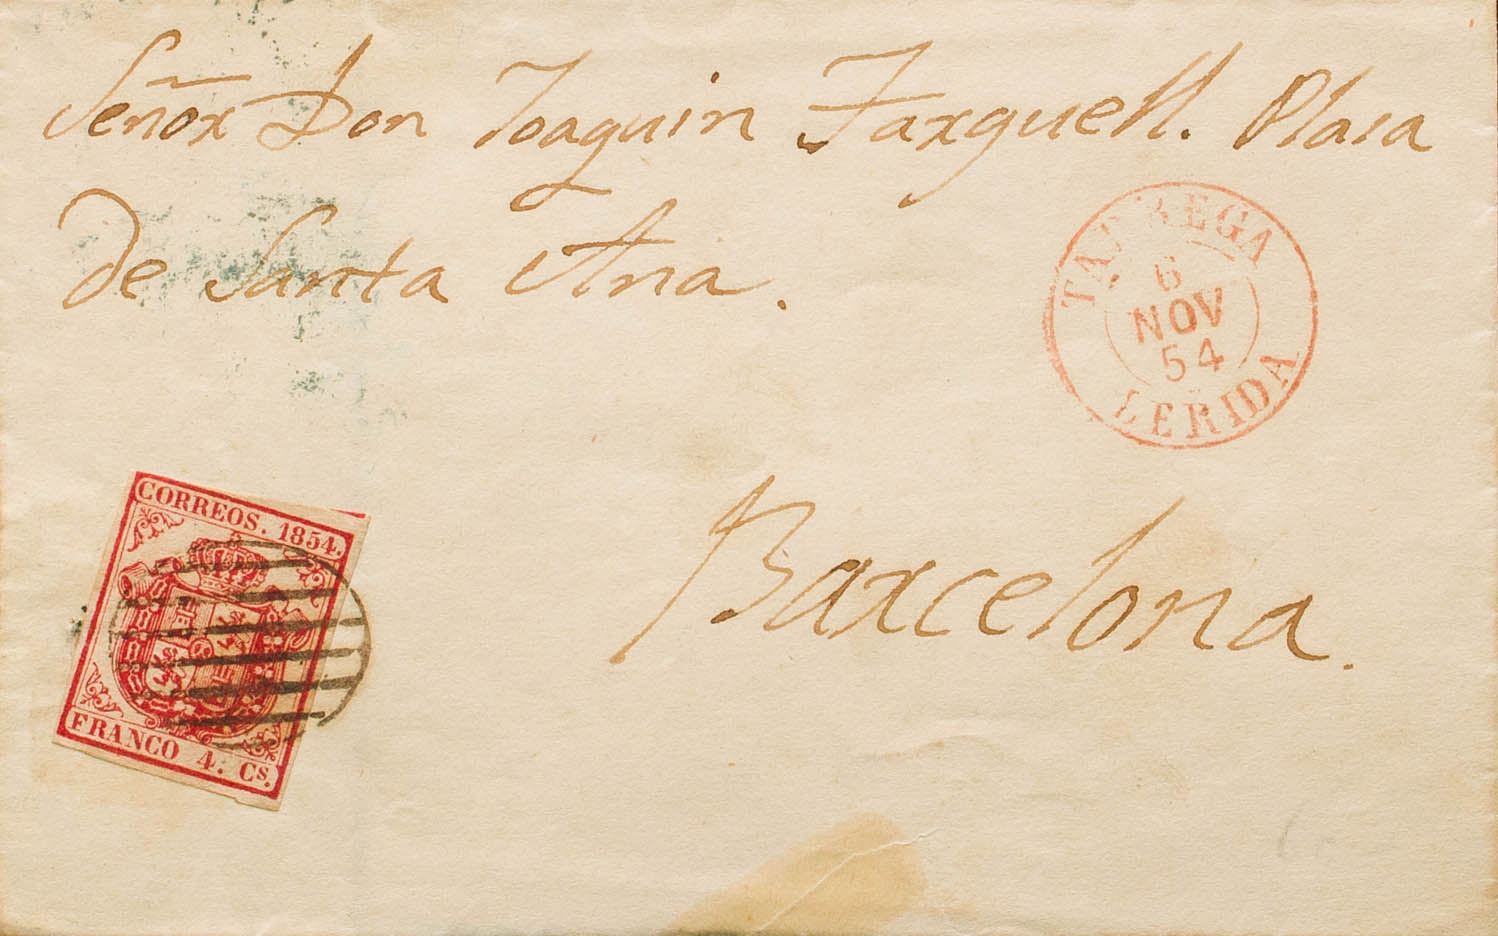 Señor Don Joaquin Farguell. Plasa
de Santa Ana.
TARREGA
6
NOV
54
LERIDA
Barcelona.
CORREOS. 1854.
FRANCO 4: Cs.